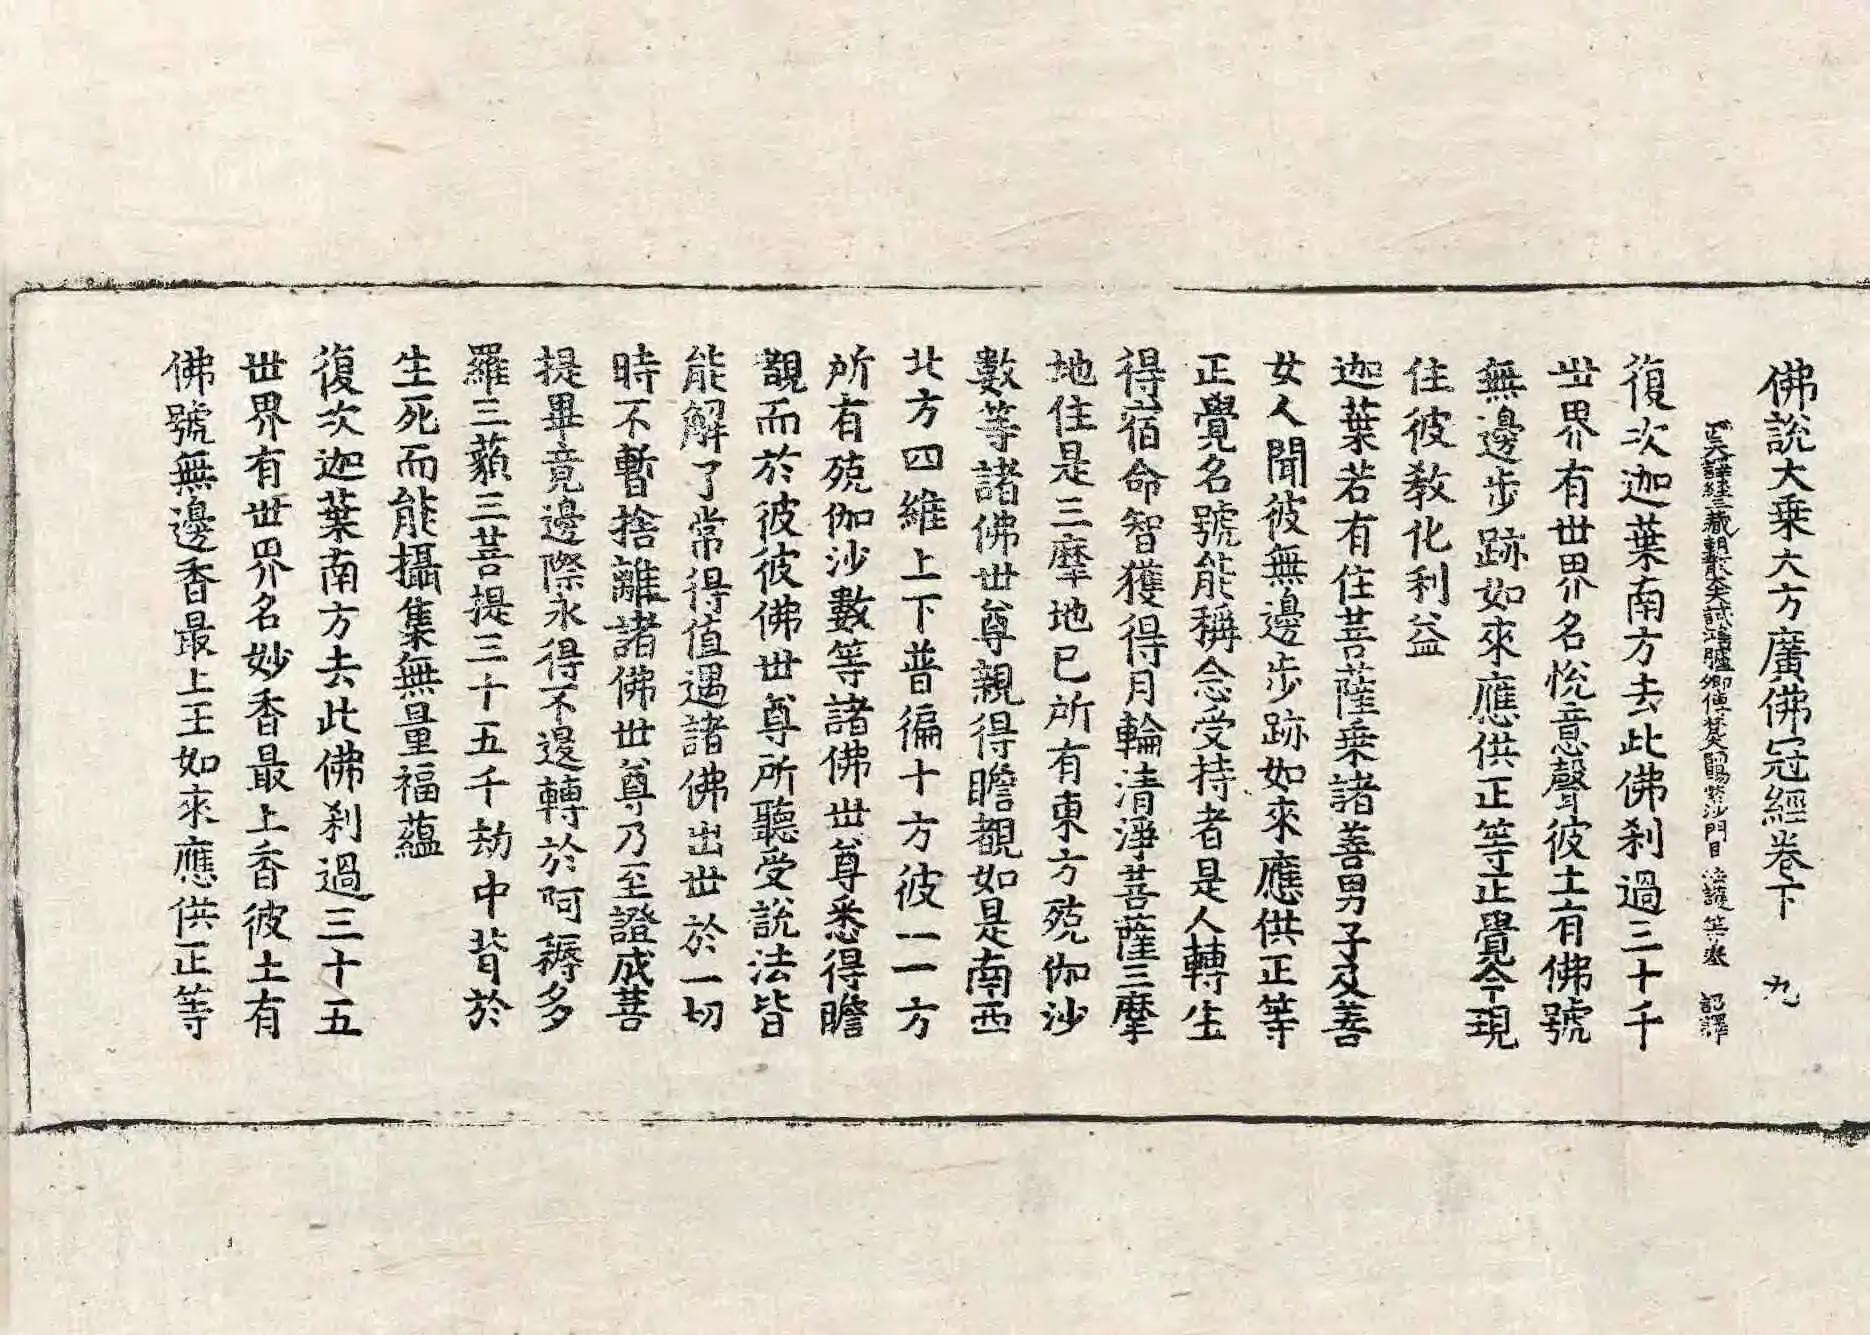 佛說大乘大方廣佛冠經卷下 九
譯經三藏朝散大夫試鴻臚卿傳梵大師賜紫沙門臣法護等奉 詔譯
復次迦葉南方去此佛刹過三十千
世界有世界名悅意聲彼土有佛號
無邊步跡如來應供正等正覺今現
住彼教化利益
迦葉若有住菩薩乘諸善男子及善
女人聞彼無邊步跡如來應供正等
正覺名號能稱念受持者是人轉生
得宿命智獲得月輪清淨菩薩三摩
地住是三摩地已所有東方殑伽沙
數等諸佛世尊親得瞻覩如是南西
北方四維上下普徧十方彼一一方
所有殑伽沙數等諸佛世尊悉得瞻
覩而於彼彼佛世尊所聽受說法皆
能解了常得值遇諸佛出世於一切
時不暫捨離諸佛世尊乃至證成菩
提畢竟邊際永得不退轉於阿耨多
羅三藐三菩提三十五千劫中背於
生死而能攝集無量福蘊
復次迦葉南方去此佛刹過三十五
世界有世界名妙香最上香彼土有
佛號無邊香最上王如來應供正等